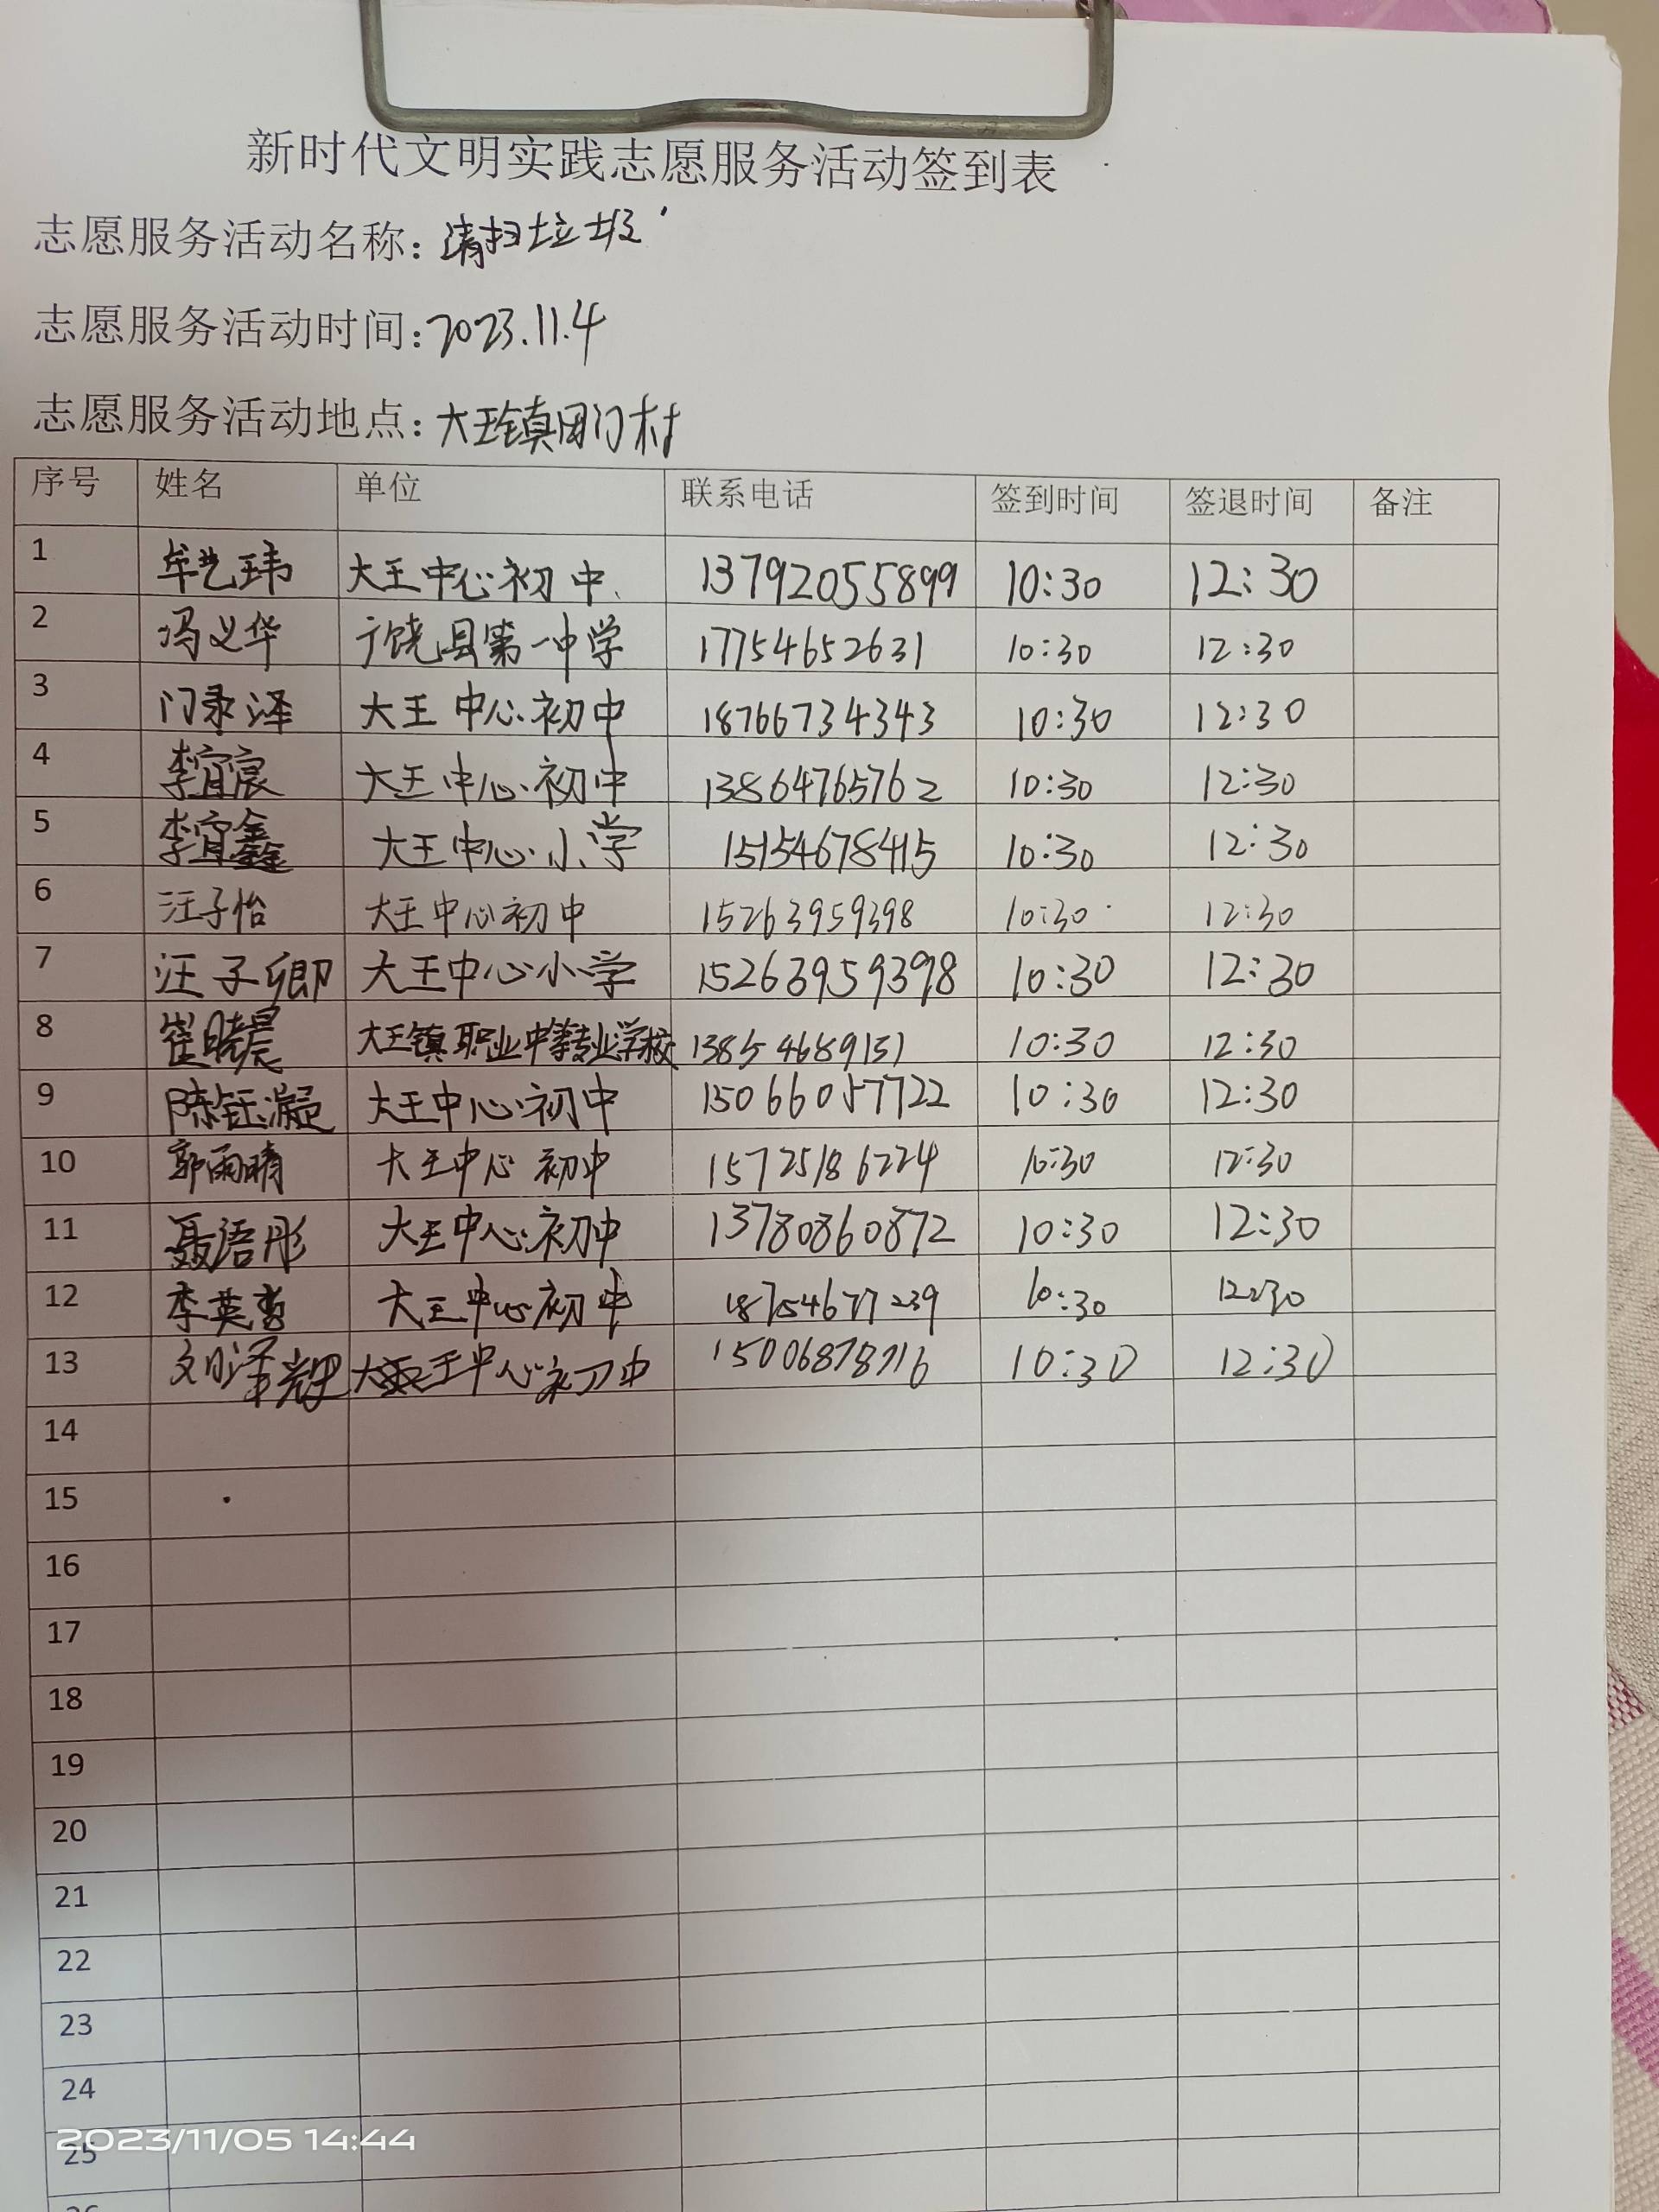 新时代文明实践志愿服务活动签到表
志愿服务活动名称：清扫垃圾
志愿服务活动时间：2023.11.4
志愿服务活动地点：大王镇周门村
序号 姓名 单位 联系电话 签到时间 签退时间 备注
1 牟艺玮 大王中心初中 13792055899 10:30 12:30
2 冯义华 广饶县第一中学 17754652631 10:30 12:30
3 门录泽 大王中心初中 18766734343 10:30 12:30
4 李宜宸 大王中心初中 13864765762 10:30 12:30
5 李宜鑫 大王中心小学 15154678415 10:30 12:30
6 汪子怡 大王中心初中 15263959398 10:30 12:30
7 汪子卿 大王中心小学 15263959398 10:30 12:30
8 崔晓晨 大王镇职业中等专业学校 13854689151 10:30 12:30
9 陈钰凝 大王中心初中 15066057722 10:30 12:30
10 郭雨晴 大王中心初中 15725186224 10:30 12:30
11 聂语彤 大王中心初中 13780860872 10:30 12:30
12 李英哲 大王中心初中 18754677239 10:30 12:30
13 刘泽 大王中心初中 15006878716 10:30 12:30
14
15
16
17
18
19
20
21
22
23
24
2023/11/05 14:44
25